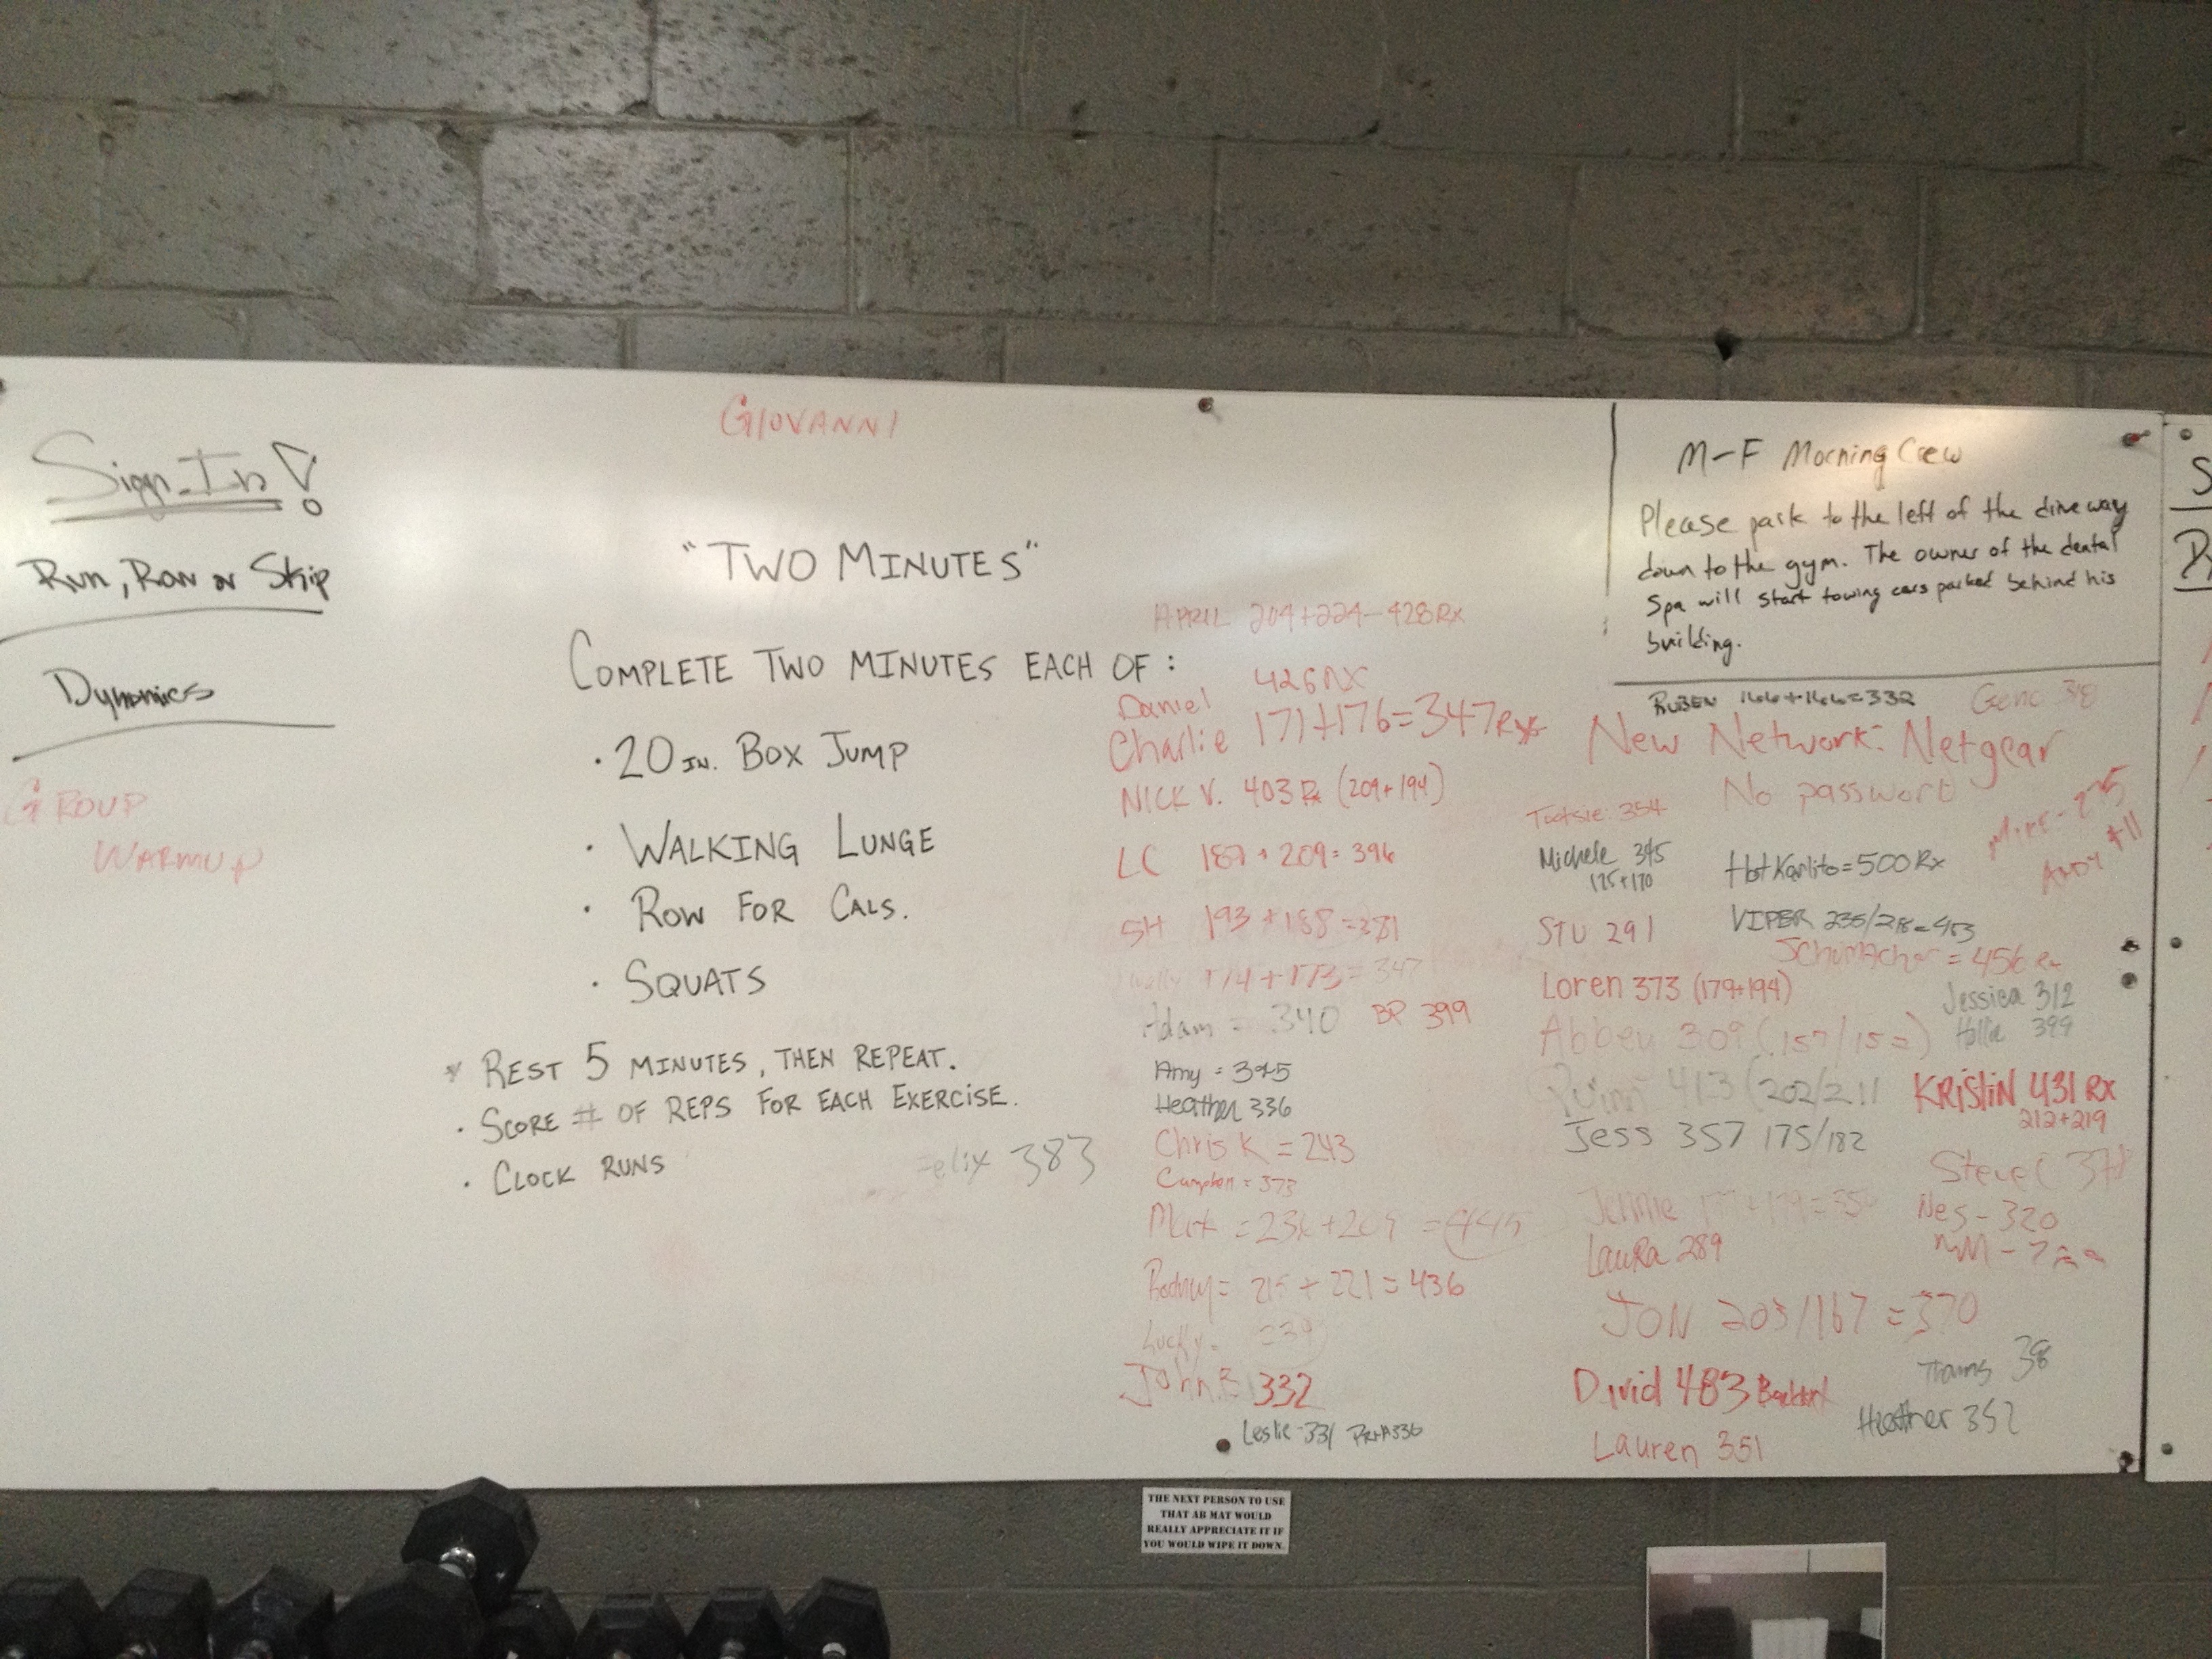 GIOVANNI
Sign-In!
Run, Row or Skip
Dynamics
GROUP
WARMUP
"TWO MINUTES"
COMPLETE TWO MINUTES EACH OF:
· 20 IN. BOX JUMP
· WALKING LUNGE
· ROW FOR CALS.
· SQUATS
* REST 5 MINUTES, THEN REPEAT.
· SCORE # OF REPS FOR EACH EXERCISE.
· CLOCK RUNS
Felix 383
APRIL 204+224-428 Rx
426 RX
Daniel
Charlie 171+176=347
NICK V. 403 Rx (209+194)
LC 187 + 209= 396
SH 193 +188=381
174+173=347
Adam = 340 BP 399
Amy = 345
Heather 336
Chris K = 243
= 373
Rodney = 215 + 221 = 436
Lucky
John 332
Leslie-331
M-F Morning Crew
Please park to the left of the driveway
down to the gym. The owner of the dental
Spa will start towing cars parked behind his
building.
RUBEN 166+166=332
New Network: Netgear
No password
Tootsie: 354
Michele 345
175+170
Hot Karlito=500 Rx
Mike-275
ANDY
STU 291
VIPER 235/218=453
Schumacher = 456 Rx
Loren 373 (179+194)
Jessica 312
Hollie 399
Abbey 309
Quinn 413 (202/211
KRISTIN 431 RX
212+219
Jess 357 175/182
Steve C 378
Jennie
Nes-320
LauRa 289
JON 203/167 =370
David 483
Heather 352
Lauren 351
THE NEXT PERSON TO USE
THAT AB MAT WOULD
REALLY APPRECIATE IT IF
YOU WOULD WIPE IT DOWN.